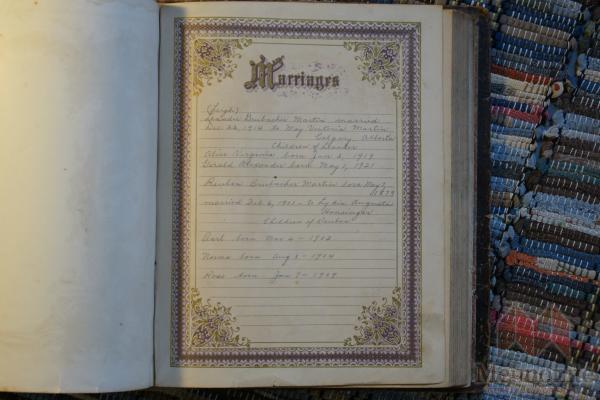 Marriages
(Leigh)
Brubacher Martin married
Dec 22, 1914 to May Victoria Martin
Calgary Alberta
Children of Leander
Alice Virginia born Jan 2, 1919
Gerald Alexander born May 1, 1921
Reuben Brubacher Martin born May 7,
1879
married Feb 6, 1901 to Lydia Augusta
Children of Reuben
Earl born Mar 4 - 1902
Norma born Aug 3 - 1904
Ross born Jan 7 - 1909